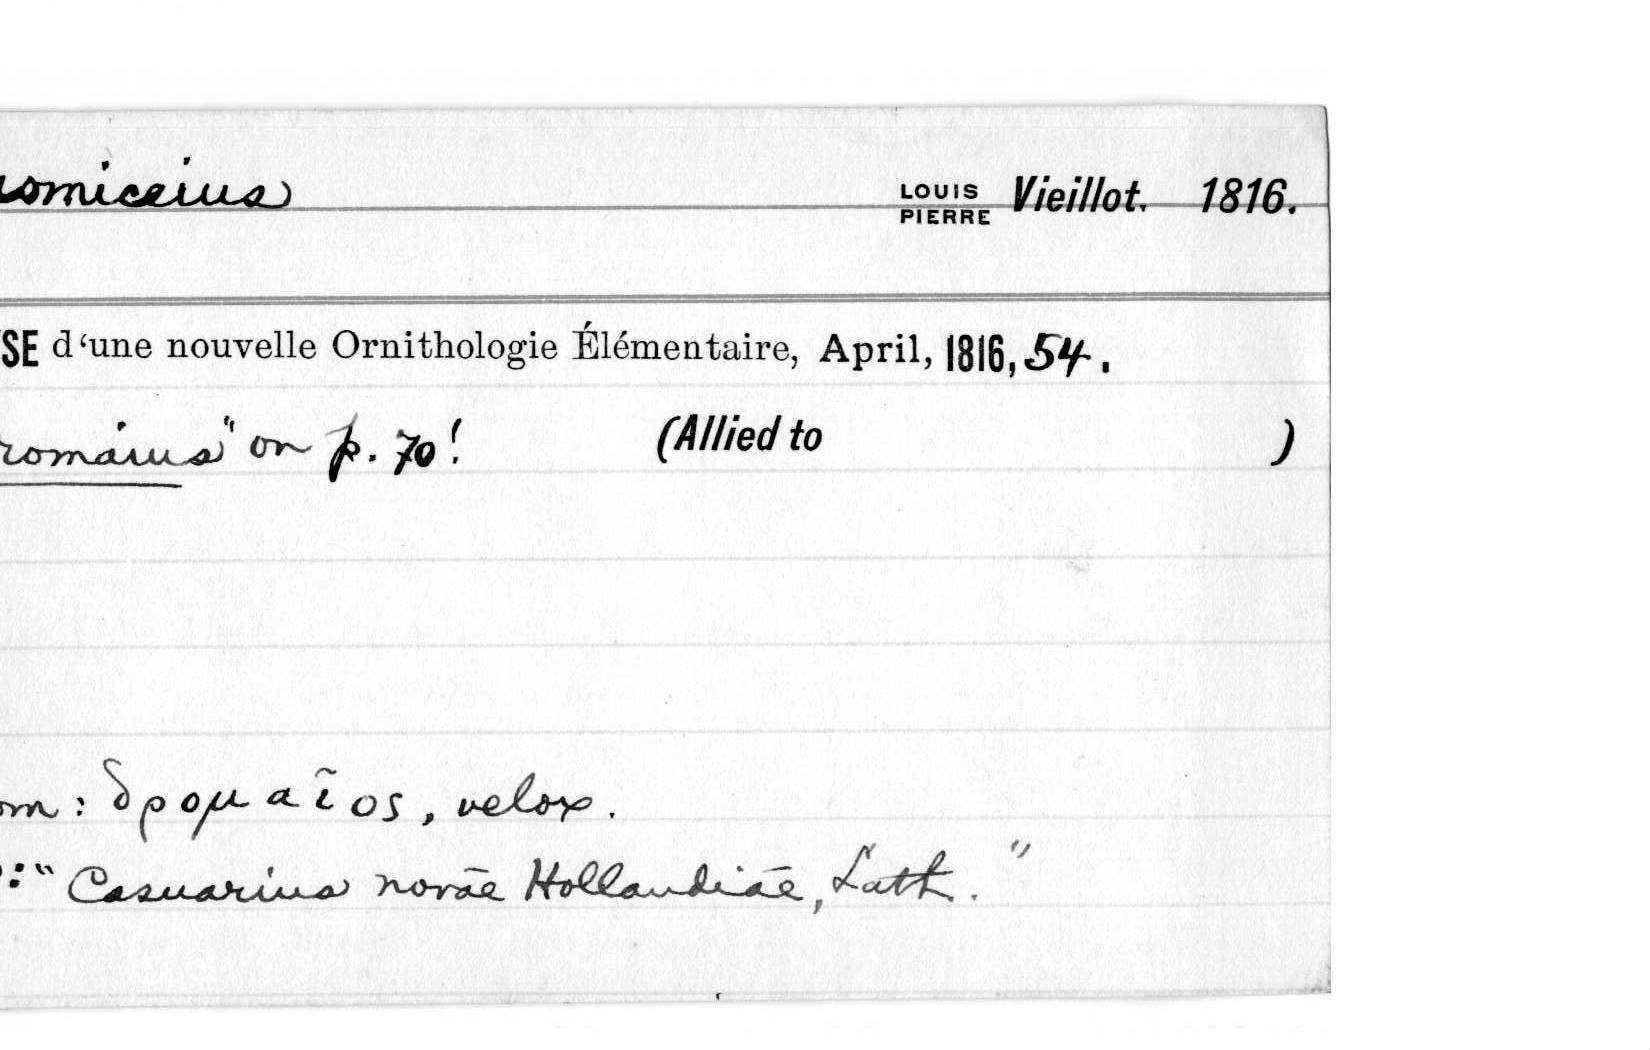 omiceius LOUIS PIERRE Vieillot. 1816.
SE d‘une nouvelle Ornithologie Élémentaire, April, 1816, 54.
romaius" on p. 70! (Allied to )
om: δρομαῖος, velox.
: "Casuarius novae Hollandiae, Lath."